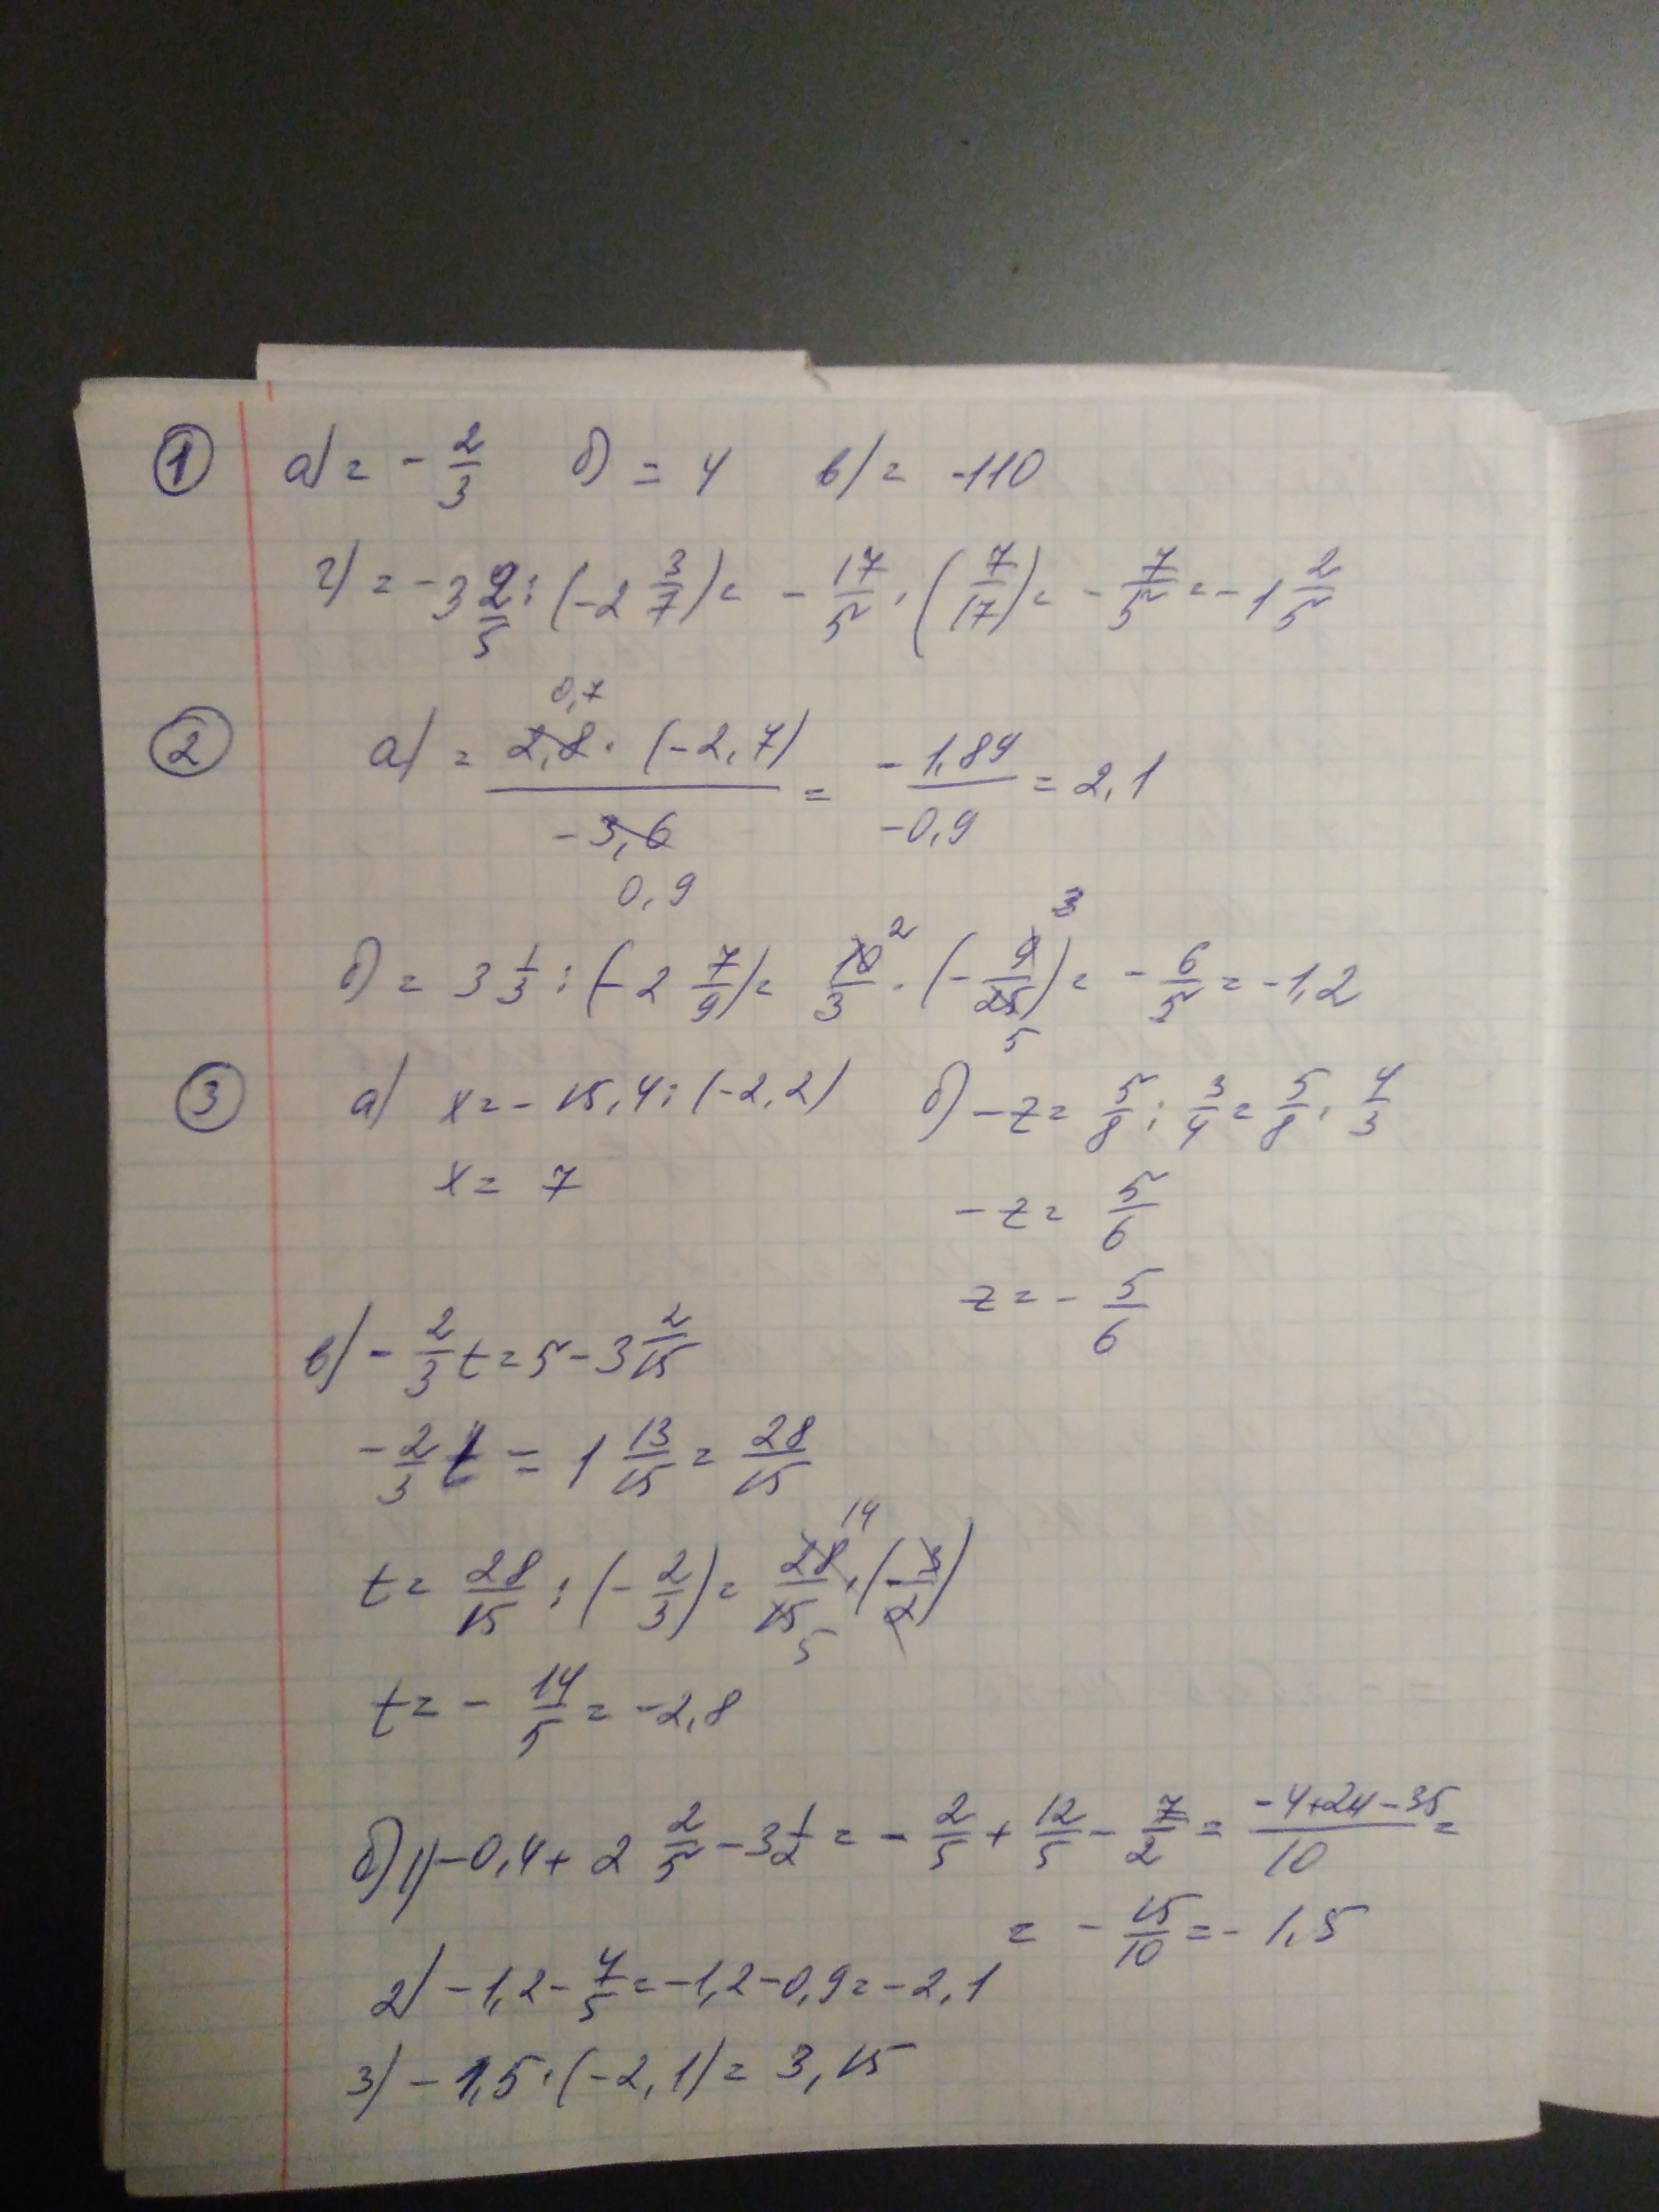 1 а) = - 2/3 б) = 4 в) = -110
г) = -3 2/5 : (-2 3/7) = - 17/5 · (7/17) = - 7/5 = -1 2/5
2 а) = 2,8 · (-2,7) / -3,6 = -1,89 / -0,9 = 2,1
0,7
0,9
б) = 3 1/3 : (-2 7/9) = 10/3 · (- 9/25) = - 6/5 = -1,2
2 3
5
3 а) x = - 15,4 : (-2,2) б) -z = 5/8 : 3/4 = 5/8 · 4/3
x = 7 -z = 5/6
z = - 5/6
в) - 2/3 t = 5 - 3 2/15
- 2/3 t = 1 13/15 = 28/15
t = 28/15 : (- 2/3) = 28/15 · (- 3/2)
14
5
t = - 14/5 = -2,8
б) 1) -0,4 + 2 2/5 - 3 1/2 = - 2/5 + 12/5 - 7/2 = -4+24-35 / 10 =
= - 15/10 = - 1,5
2) -1,2 - 4/5 = -1,2 - 0,9 = -2,1
3) - 1,5 · (-2,1) = 3,15